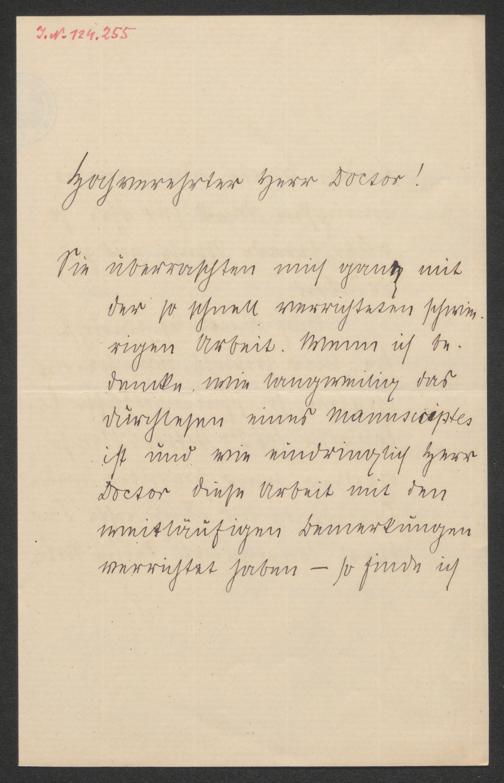 J.N. 124.255
Hochverehrter Herr Doctor!
Sie überraschten mich ganz mit
der so schnell verrichteten schwie-
rigen Arbeit. Wenn ich be-
denke, wie langweilig das
Durchlesen eines Manuscriptes
ist und wie eindringlich Herr
Doctor diese Arbeit mit den
weitläufigen Bemerkungen
verrichtet haben – so finde ich